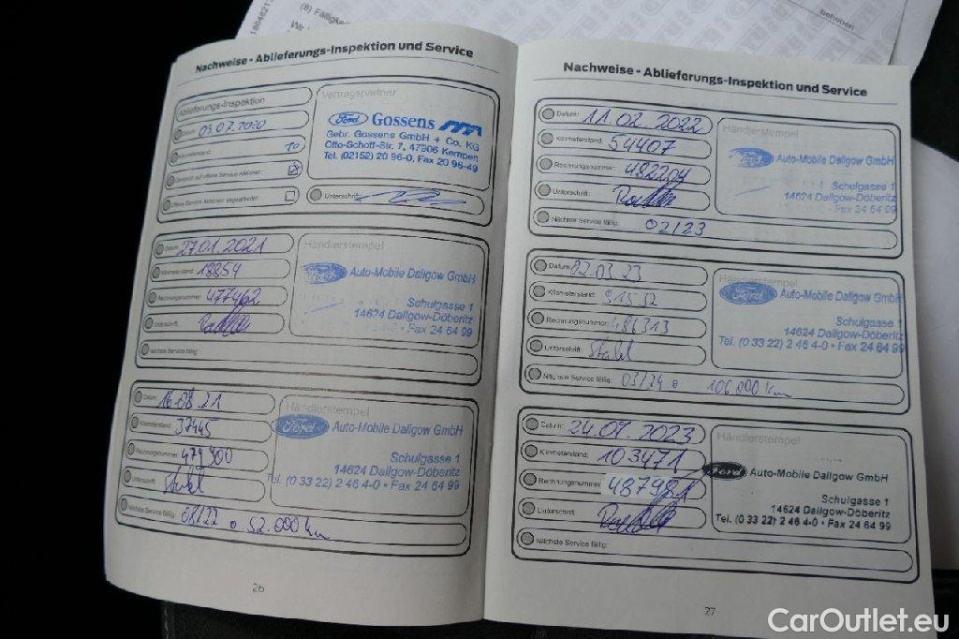 (8) Fälligkeit
Nachweise - Ablieferungs-Inspektion und Service
Ablieferungs-Inspektion
Datum: 03.07.2020
10
Unterschrift:
Vertragspartner
Ford Gossens
Gebr. Gossens GmbH + Co. KG
Otto-Schott-Str. 7, 47906 Kempen
Tel. (02152) 20 96-0, Fax 20 96-49
Datum: 27.01.2021
Kilometerstand: 18854
Rechnungsnummer: 477462
Unterschrift:
Nächste Service fällig:
Händlerstempel
Ford Auto-Mobile Dallgow GmbH
Schulgasse 1
14624 Dallgow-Döberitz
Fax 24 64 99
Datum: 16.08.21
Kilometerstand: 37445
Rechnungsnummer: 479900
Unterschrift: Stahl
Nächste Service fällig: 08/22 o 52.000 km
Händlerstempel
Ford Auto-Mobile Dallgow GmbH
Schulgasse 1
14624 Dallgow-Döberitz
Tel. (0 33 22) 2 46 4-0 • Fax 24 64 99
26
Nachweise - Ablieferungs-Inspektion und Service
Datum: 11.02.2022
Kilometerstand: 54407
Rechnungsnummer: 482204
Unterschrift:
Nächste Service fällig: 02/23
Händlerstempel
Auto-Mobile Dallgow GmbH
Schulgasse 1
14624 Dallgow-Döberitz
Fax 24 64 99
Datum: 02.03.23
Kilometerstand: 91532
Rechnungsnummer: 486313
Unterschrift: Stahl
Nächste Service fällig: 03/24 o 106.000 km
Händlerstempel
Ford Auto-Mobile Dallgow GmbH
Schulgasse 1
14624 Dallgow-Döberitz
Tel. (0 33 22) 2 46 4-0 • Fax 24 64 99
Datum: 24.07.2023
Kilometerstand: 103471
Rechnungsnummer: 487981
Unterschrift:
Nächste Service fällig:
Händlerstempel
Ford Auto-Mobile Dallgow GmbH
Schulgasse 1
14624 Dallgow-Döberitz
Tel. (0 33 22) 2 46 4-0 • Fax 24 64 99
27
CarOutlet.eu